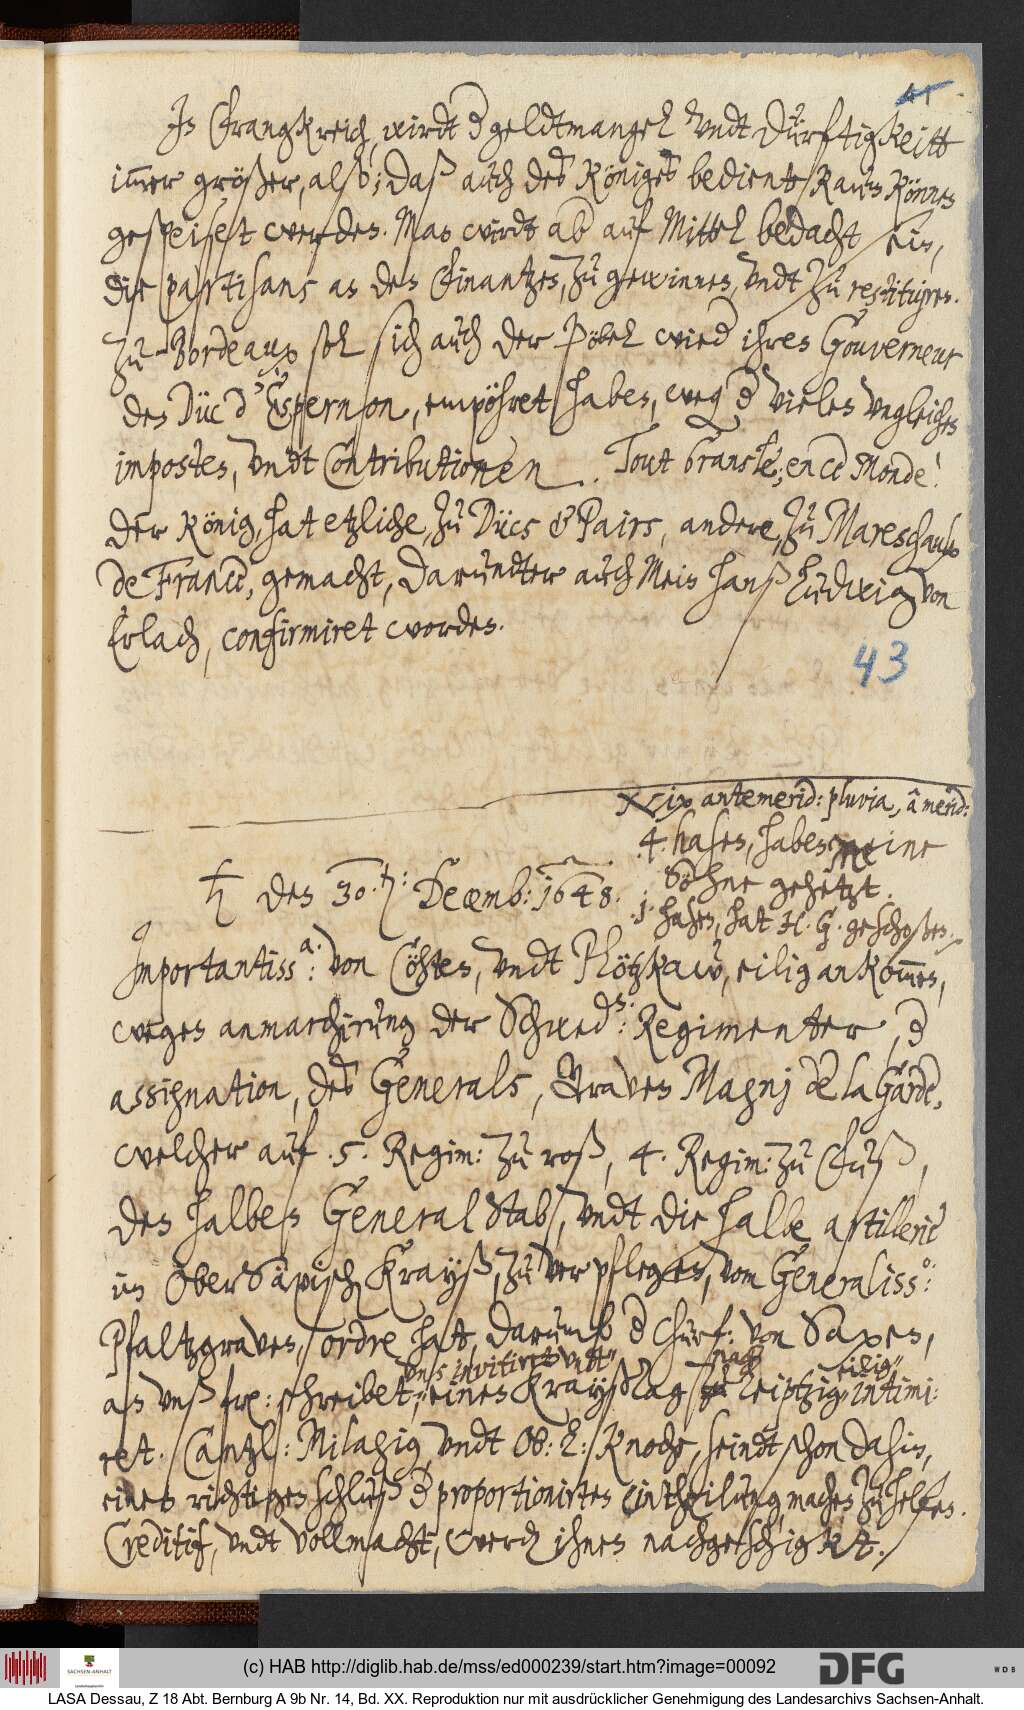 41
In Frangkreich, wirdt d geldtmangel vndt Dürftigkeitt
im̄er größer, also; daß auch des Königes bediente kaum können
gespeiset werden. Man wirdt ab auf Mittel bedacht sein,
die Partisans an den Finantzen, zu gewinnen, vndt zu restituiren.
Zu Bordeaux sol sich auch der Pöbel wied ihren Gouverneur
den Düc d'Espernon, empöhret haben, weg d vielen vngleichen
imposten, vndt Contributionen. Tout bransle, en ce Monde!
Der König, hat etzliche, zu Dücs & Pairs, andere, zu Mareschaulx
de France, gemacht, darundter auch Mein Hanß Ludwig von
Erlach, confirmiret worden.
43
xxix antemerid: pluvia, à merid:
4. hasen, haben meine
Söhne gehetzt.
1. hasen, hat H. G. geschoßen.
♄ den 30. ♄: Decemb: 1648.
Importantiss.a: von Cöhten, vndt Plötzkaw, eilig ankom̄en,
wegen anmarchirung der Schwed.n: Regimenter, d
assignation, des Generals, Graven Magnj de la Garde,
welcher auf .5. Regim: zu roß, 4. Regim: zu Fuß,
den halben General Stab, vndt die halbe artillerie
im OberSäxisch Krayß, zu verpflegen, vom Generaliss.o:
Pfaltzgraven, ordre hat, darumb d Churf: von Saxen,
an vnß fr: schreibet, vnß invitiret vndt einen Kraystag nach Leiptzig eilig intimi:
ret. Cantzl: Milagig, vndt Ob: L: Knoche, seindt schon dahin,
einen richtigen schluß d proportionirten eintheilung, machen zu helfen.
Creditif, vndt Vollmacht, werd ihnen nachgeschigkt.
(c) HAB http://diglib.hab.de/mss/ed000239/start.htm?image=00092
SACHSEN-ANHALT
DFG
WDB
LASA Dessau, Z 18 Abt. Bernburg A 9b Nr. 14, Bd. XX. Reproduktion nur mit ausdrücklicher Genehmigung des Landesarchivs Sachsen-Anhalt.